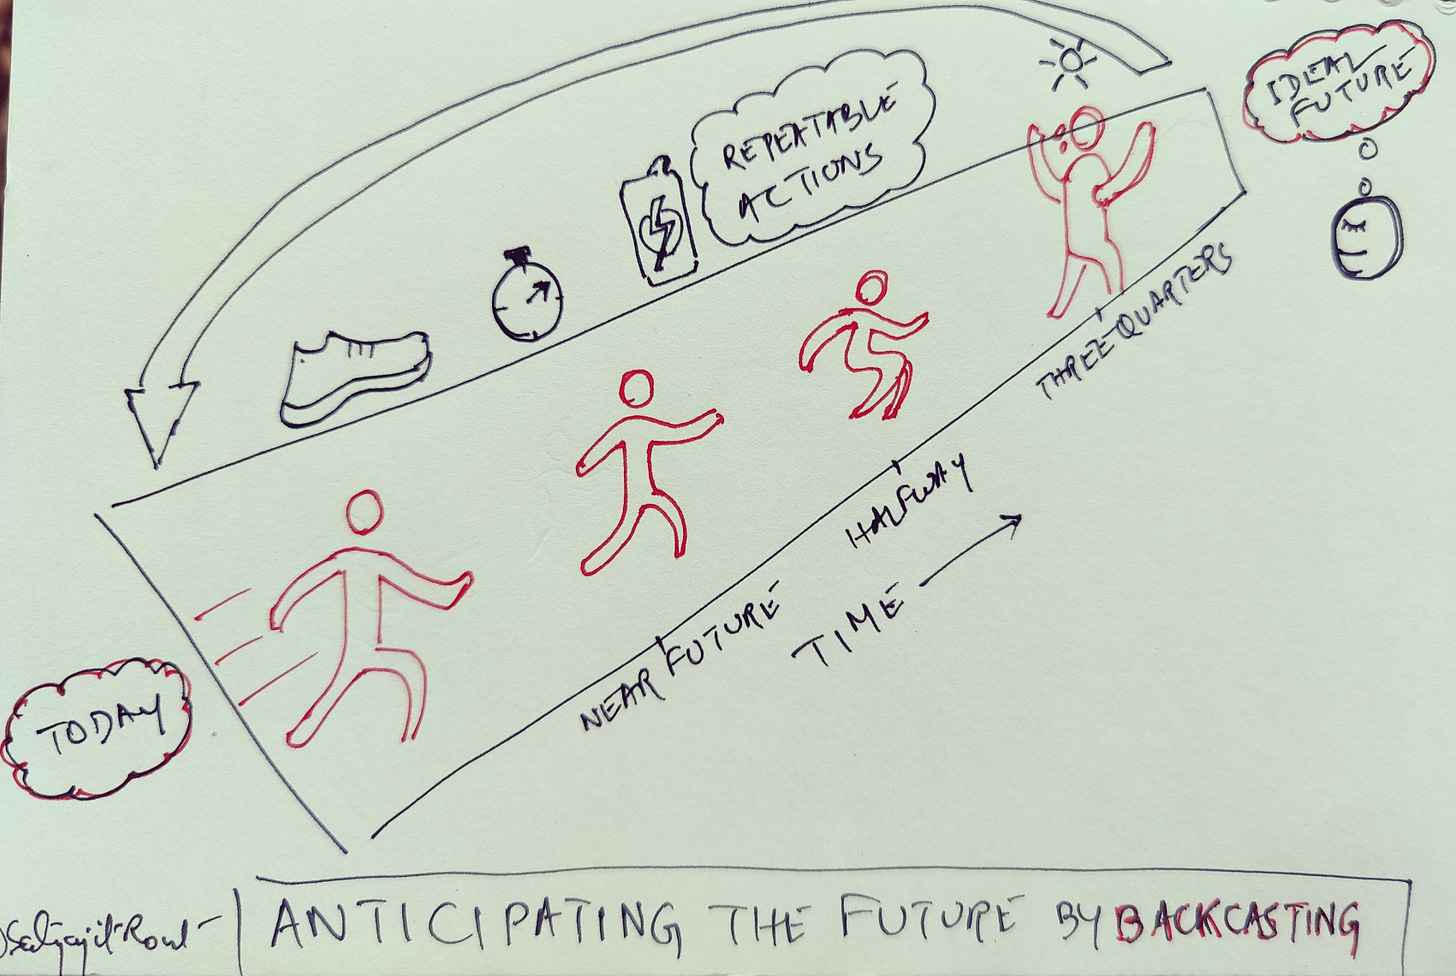 IDEAL
FUTURE
REPEATABLE
ACTIONS
THREE QUARTERS
HALFWAY
TIME
NEAR FUTURE
TODAY
ANTICIPATING THE FUTURE BY BACKCASTING